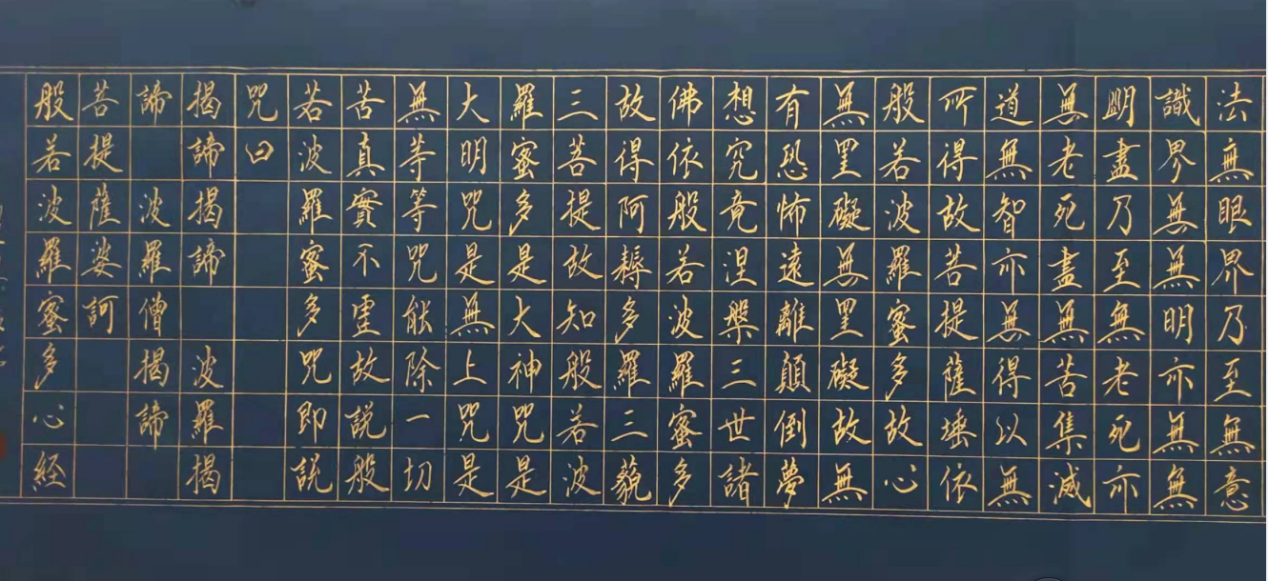 法無眼界乃至無意
識界無無明亦無無
明盡乃至無老死亦
無老死盡無苦集滅
道無智亦無得以無
所得故菩提薩埵依
般若波羅蜜多故心
無罣礙無罣礙故無
有恐怖遠離顛倒夢
想究竟涅槃三世諸
佛依般若波羅蜜多
故得阿耨多羅三藐
三菩提故知般若波
羅蜜多是大神咒是
大明咒是無上咒是
無等等咒能除一切
苦真實不虛故説般
若波羅蜜多咒即説
咒曰
揭諦揭諦 波羅揭
諦 波羅僧揭諦
菩提薩婆訶
般若波羅蜜多心経